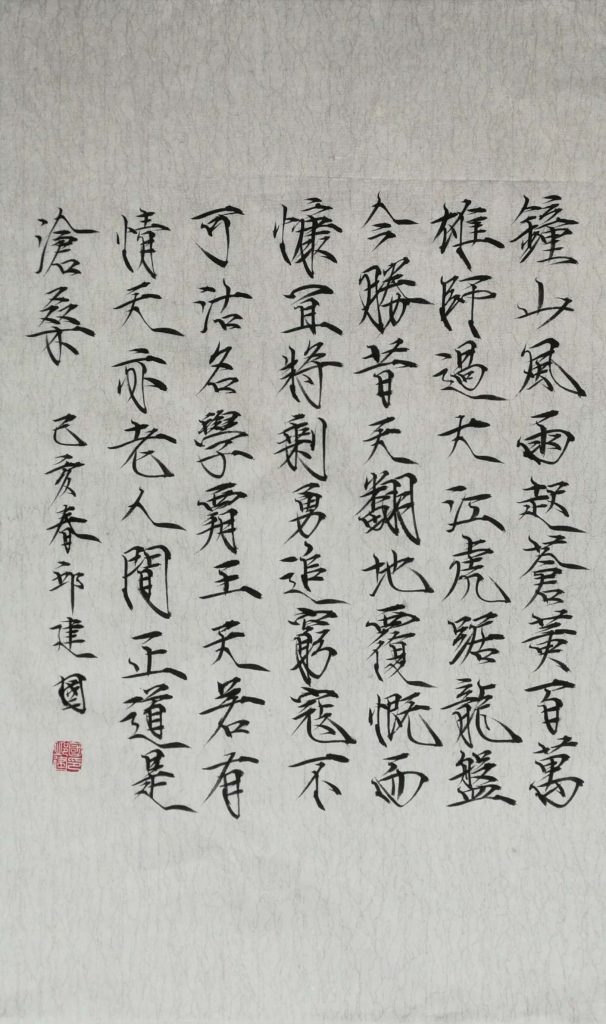 鐘山風雨起蒼黃百萬
雄師過大江虎踞龍盤
今勝昔天翻地覆慨而
慷宜將剩勇追窮寇不
可沽名學霸王天若有
情天亦老人間正道是
滄桑
己亥春邱建國